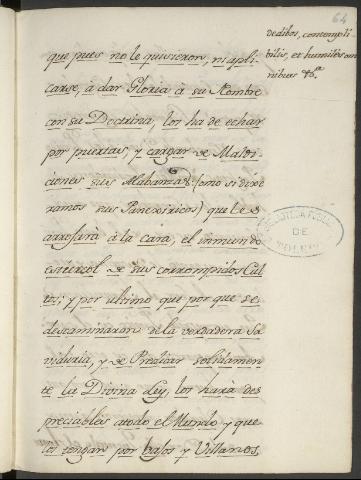 64
dediles, contempti-
biles, et humiles om-
nibus &c.ª
que pues no le quisieron, ni apli-
carse, à dar Gloria à su Nombre
con su Doctrina, los ha de echar
por puertas, y cargar de Maldi-
ciones sus Alabanzas (como si dixe-
ramos sus Panexiricos) que les
arrojarà à la cara, el inmundo
estiercol de sus corrompidos Cul-
tos; y por ultimo que por que se
descaminaron de la verdadera Sa-
viduria, y de Predicar solidamen-
te la Divina Ley, los harà des-
preciables atodo el Mundo y que
los tengan por bajos y Villanos.
DE
TOLEDO